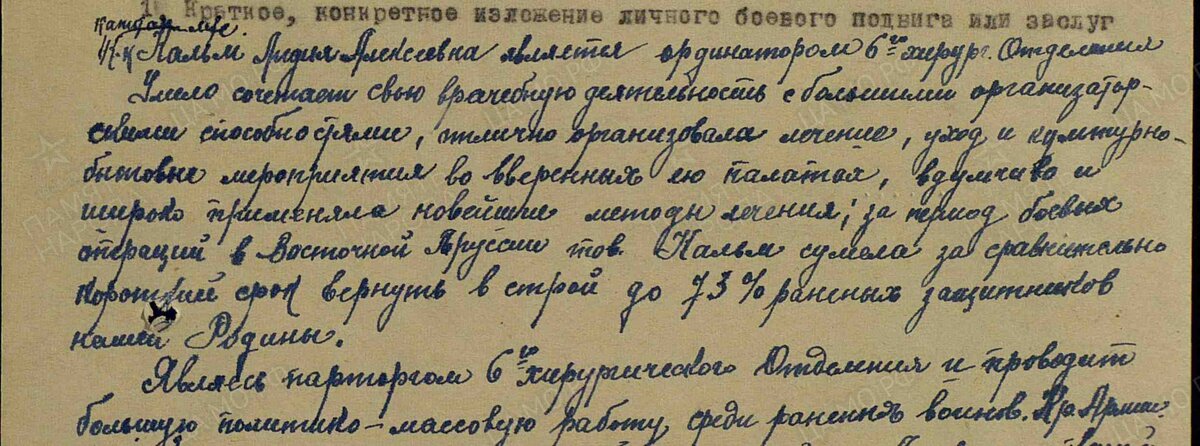 1. Краткое, конкретное изложение личного боевого подвига или заслуг
Капитан м/с
Кальм Лидия Алексеевна является ординатором 6го хирург. Отделения
Умело сочетает свою врачебную деятельность с большими организатор-
скими способностями, отлично организовала лечение, уход и культурно-
бытовые мероприятия во вверенных ею палатах, вдумчиво и
широко применяла новейшие методы лечения; за период боевых
операций в Восточной Пруссии тов. Кальм сумела за сравнительно
короткий срок вернуть в строй до 73% раненых защитников
нашей Родины.
Являясь парторгом 6го хирургического Отделения и проводит
большую политико-массовую работу среди раненых воинов. Кр. Армии.